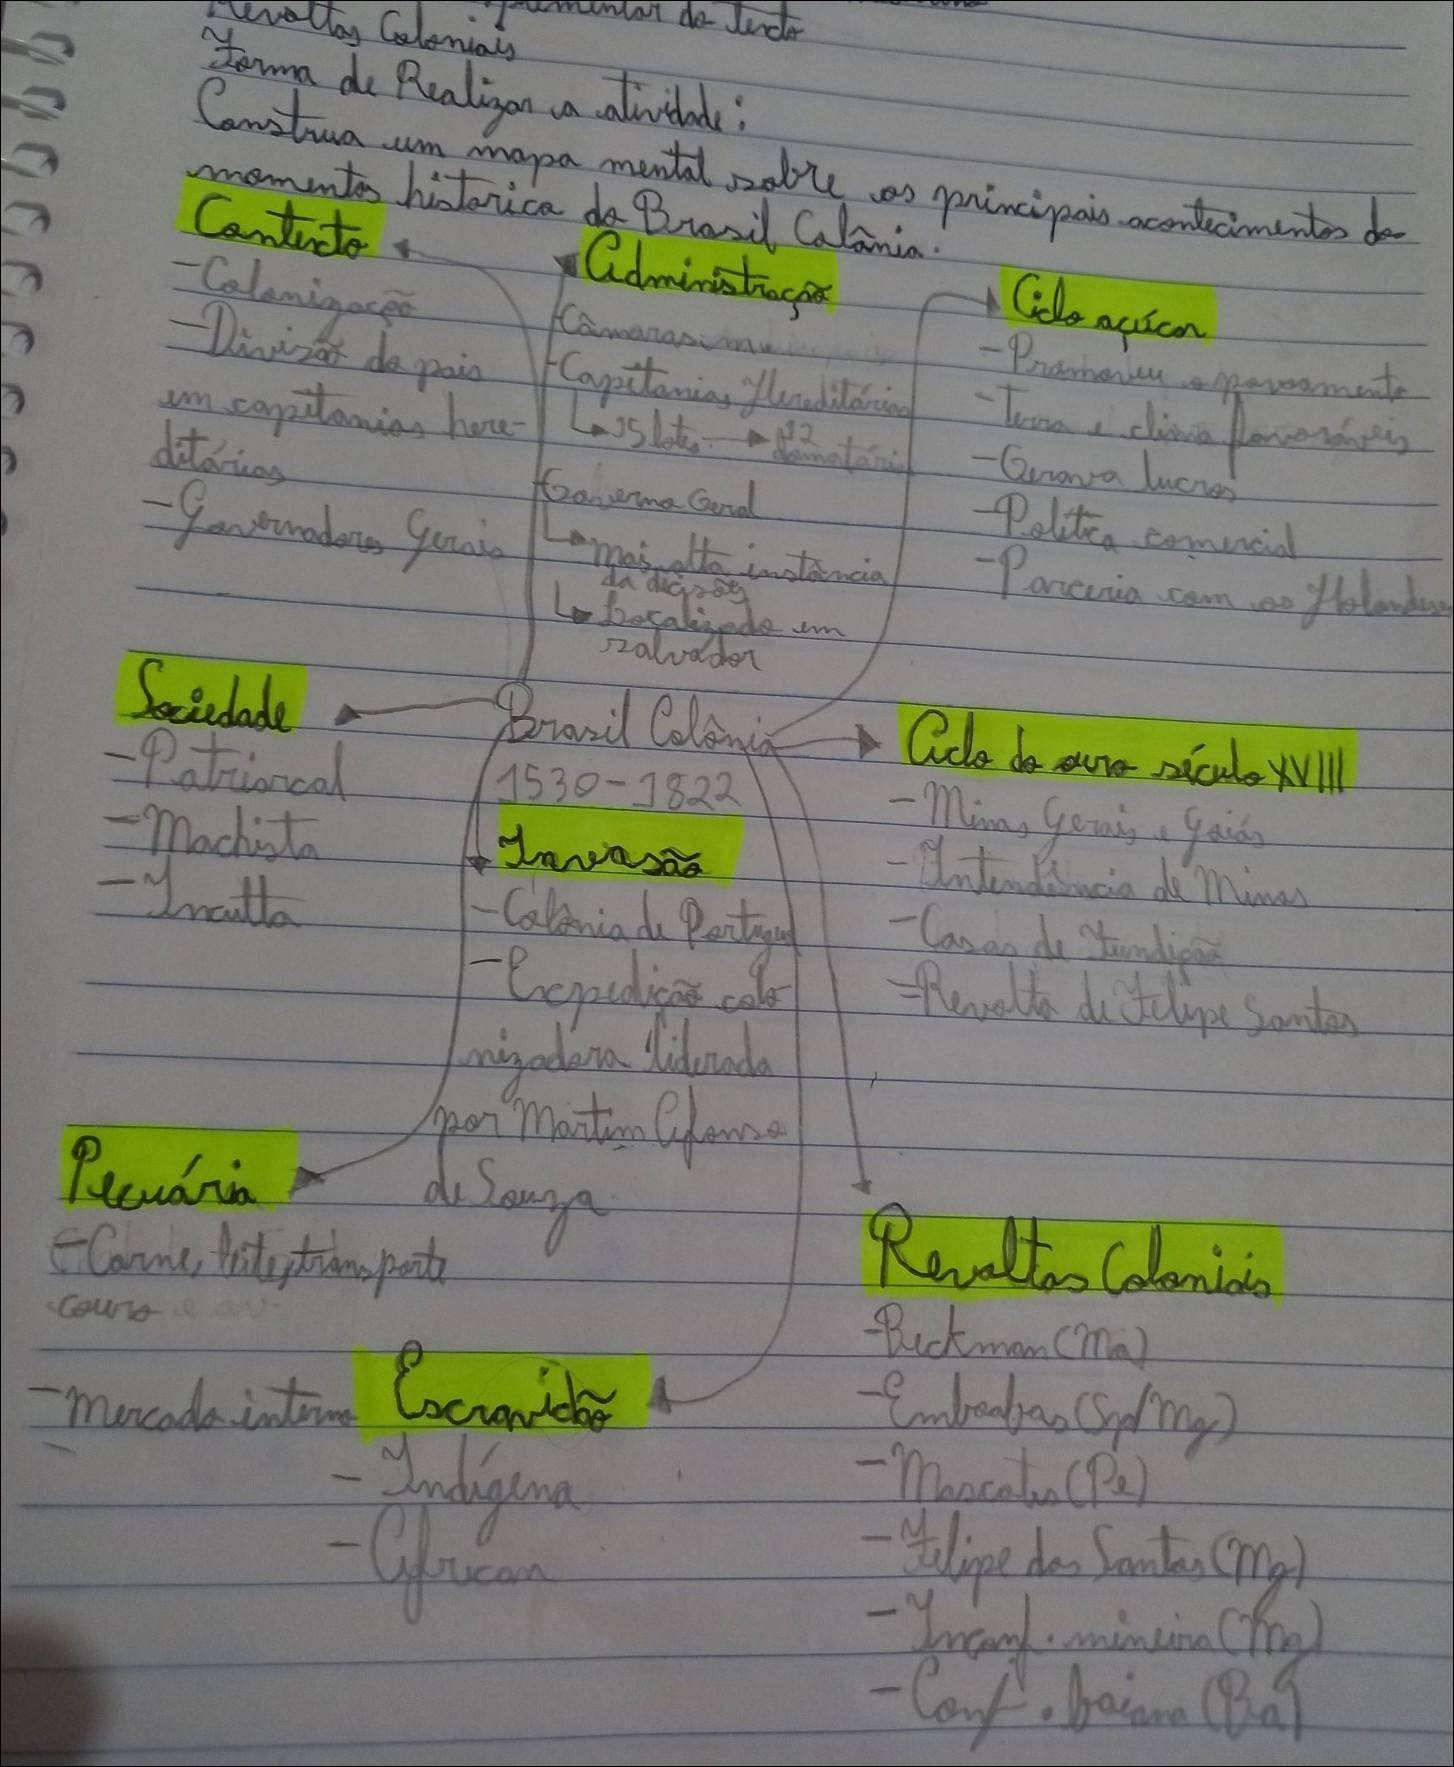 do Texto
Revoltas Coloniais
Forma de Realizar a atividade:
Construa um mapa mental sobre os principais acontecimentos do
momentos historica do Brasil Colônia.
Contexto
- Colonização
- Divisão do pais
em capitanias here-
ditárias
- Governadores Gerais
Administração
Câmaras
- Capitanias Hereditárias
15 lotes 12
donatários
Governo Geral
mais alta instância
da decisões
Localizado em
Salvador
Ciclo açúcar
- Promoveu o povoamento
- Terra e clima favoráveis
- Gerava lucros
- Política comercial
- Parceria com os Holandeses
Sociedade
- Patriarcal
- Machista
- Inculta
Brasil Colônia
1530-1822
Invasão
- Colônia de Portugal
- Expedição colo-
nizadora liderada
por Martim Afonso
de Souza
Ciclo do ouro século XVIII
- Minas Gerais e Goiás
- Intendência de Minas
- Casas de Fundição
- Revolta de Felipe Santos
Pecuária
- Carne, leite, transporte
couro
- mercado interno
Escravidão
- Indígena
- African
Revoltas Coloniais
- Beckman (Ma)
- Emboabas (Sp/Mg)
- Mascates (Pe)
- Felipe dos Santos (Mg)
- Inconf. mineira (Mg)
- Conf. baiana (Ba)